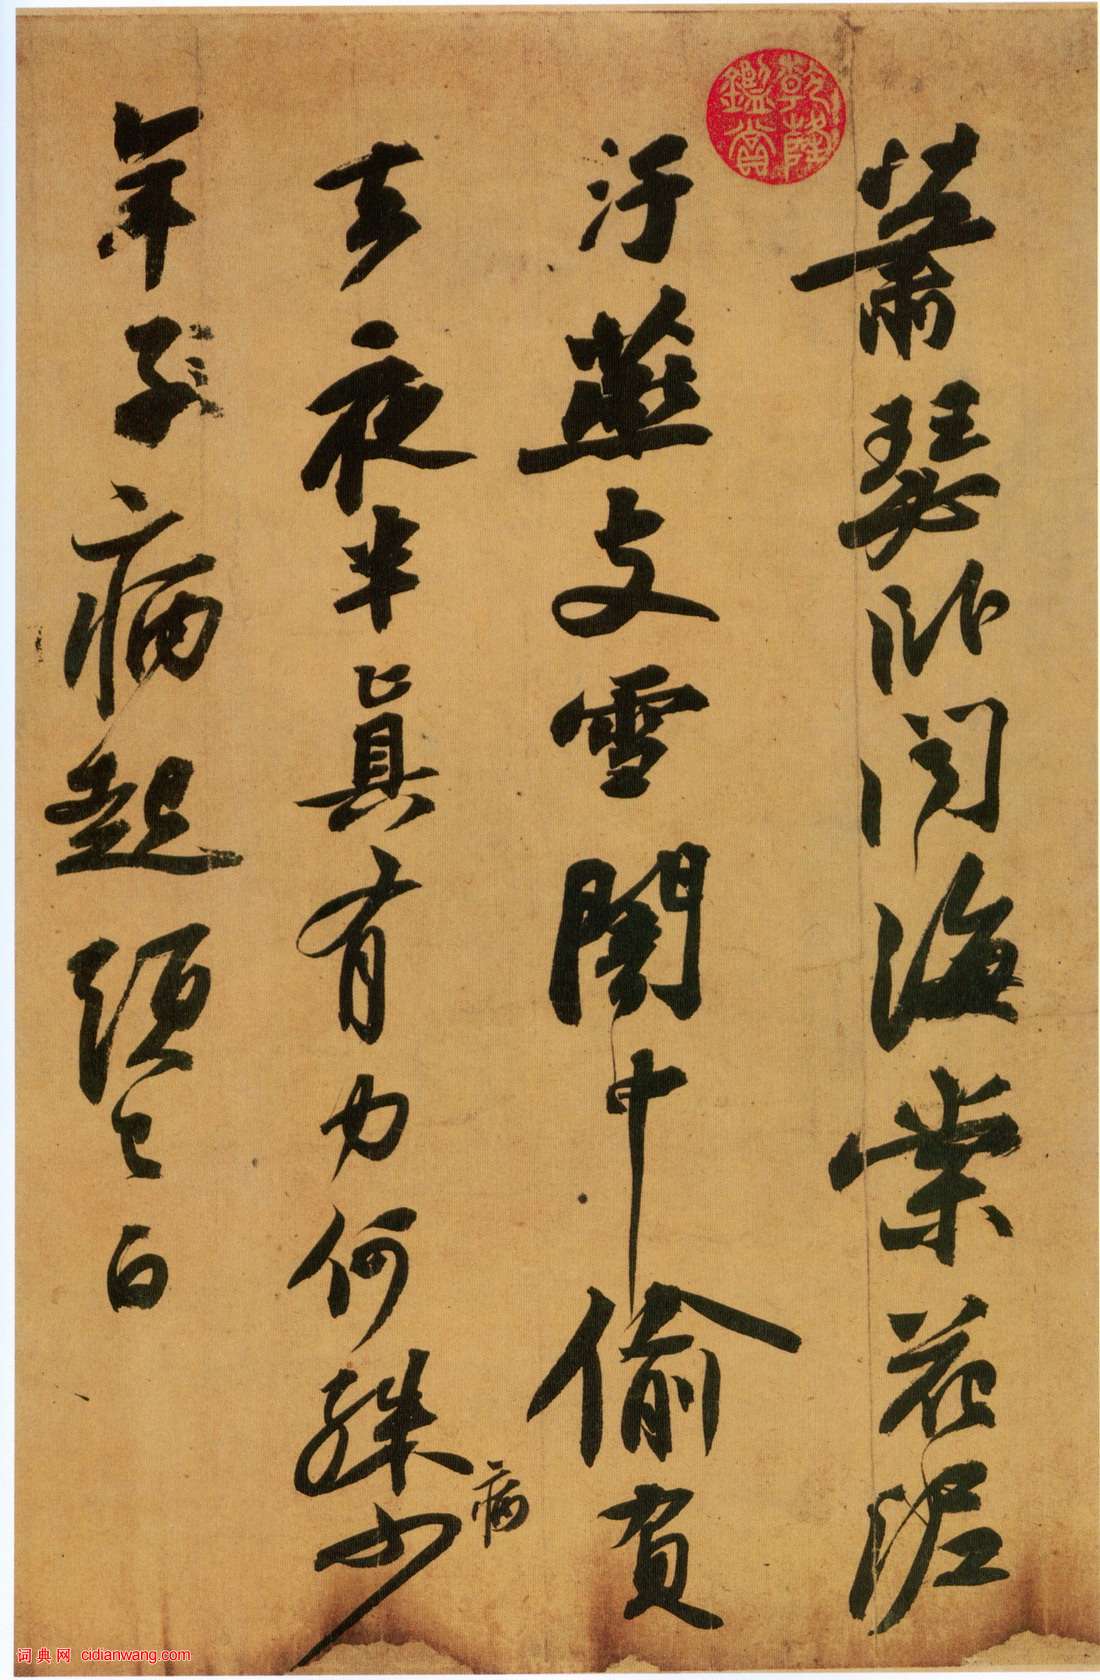 蕭瑟卧聞海棠花泥
汙燕支雪闇中偷負
去夜半真有力何殊少
病
年子病起頭已白
乾隆鑑賞
词典网 cidianwang.com